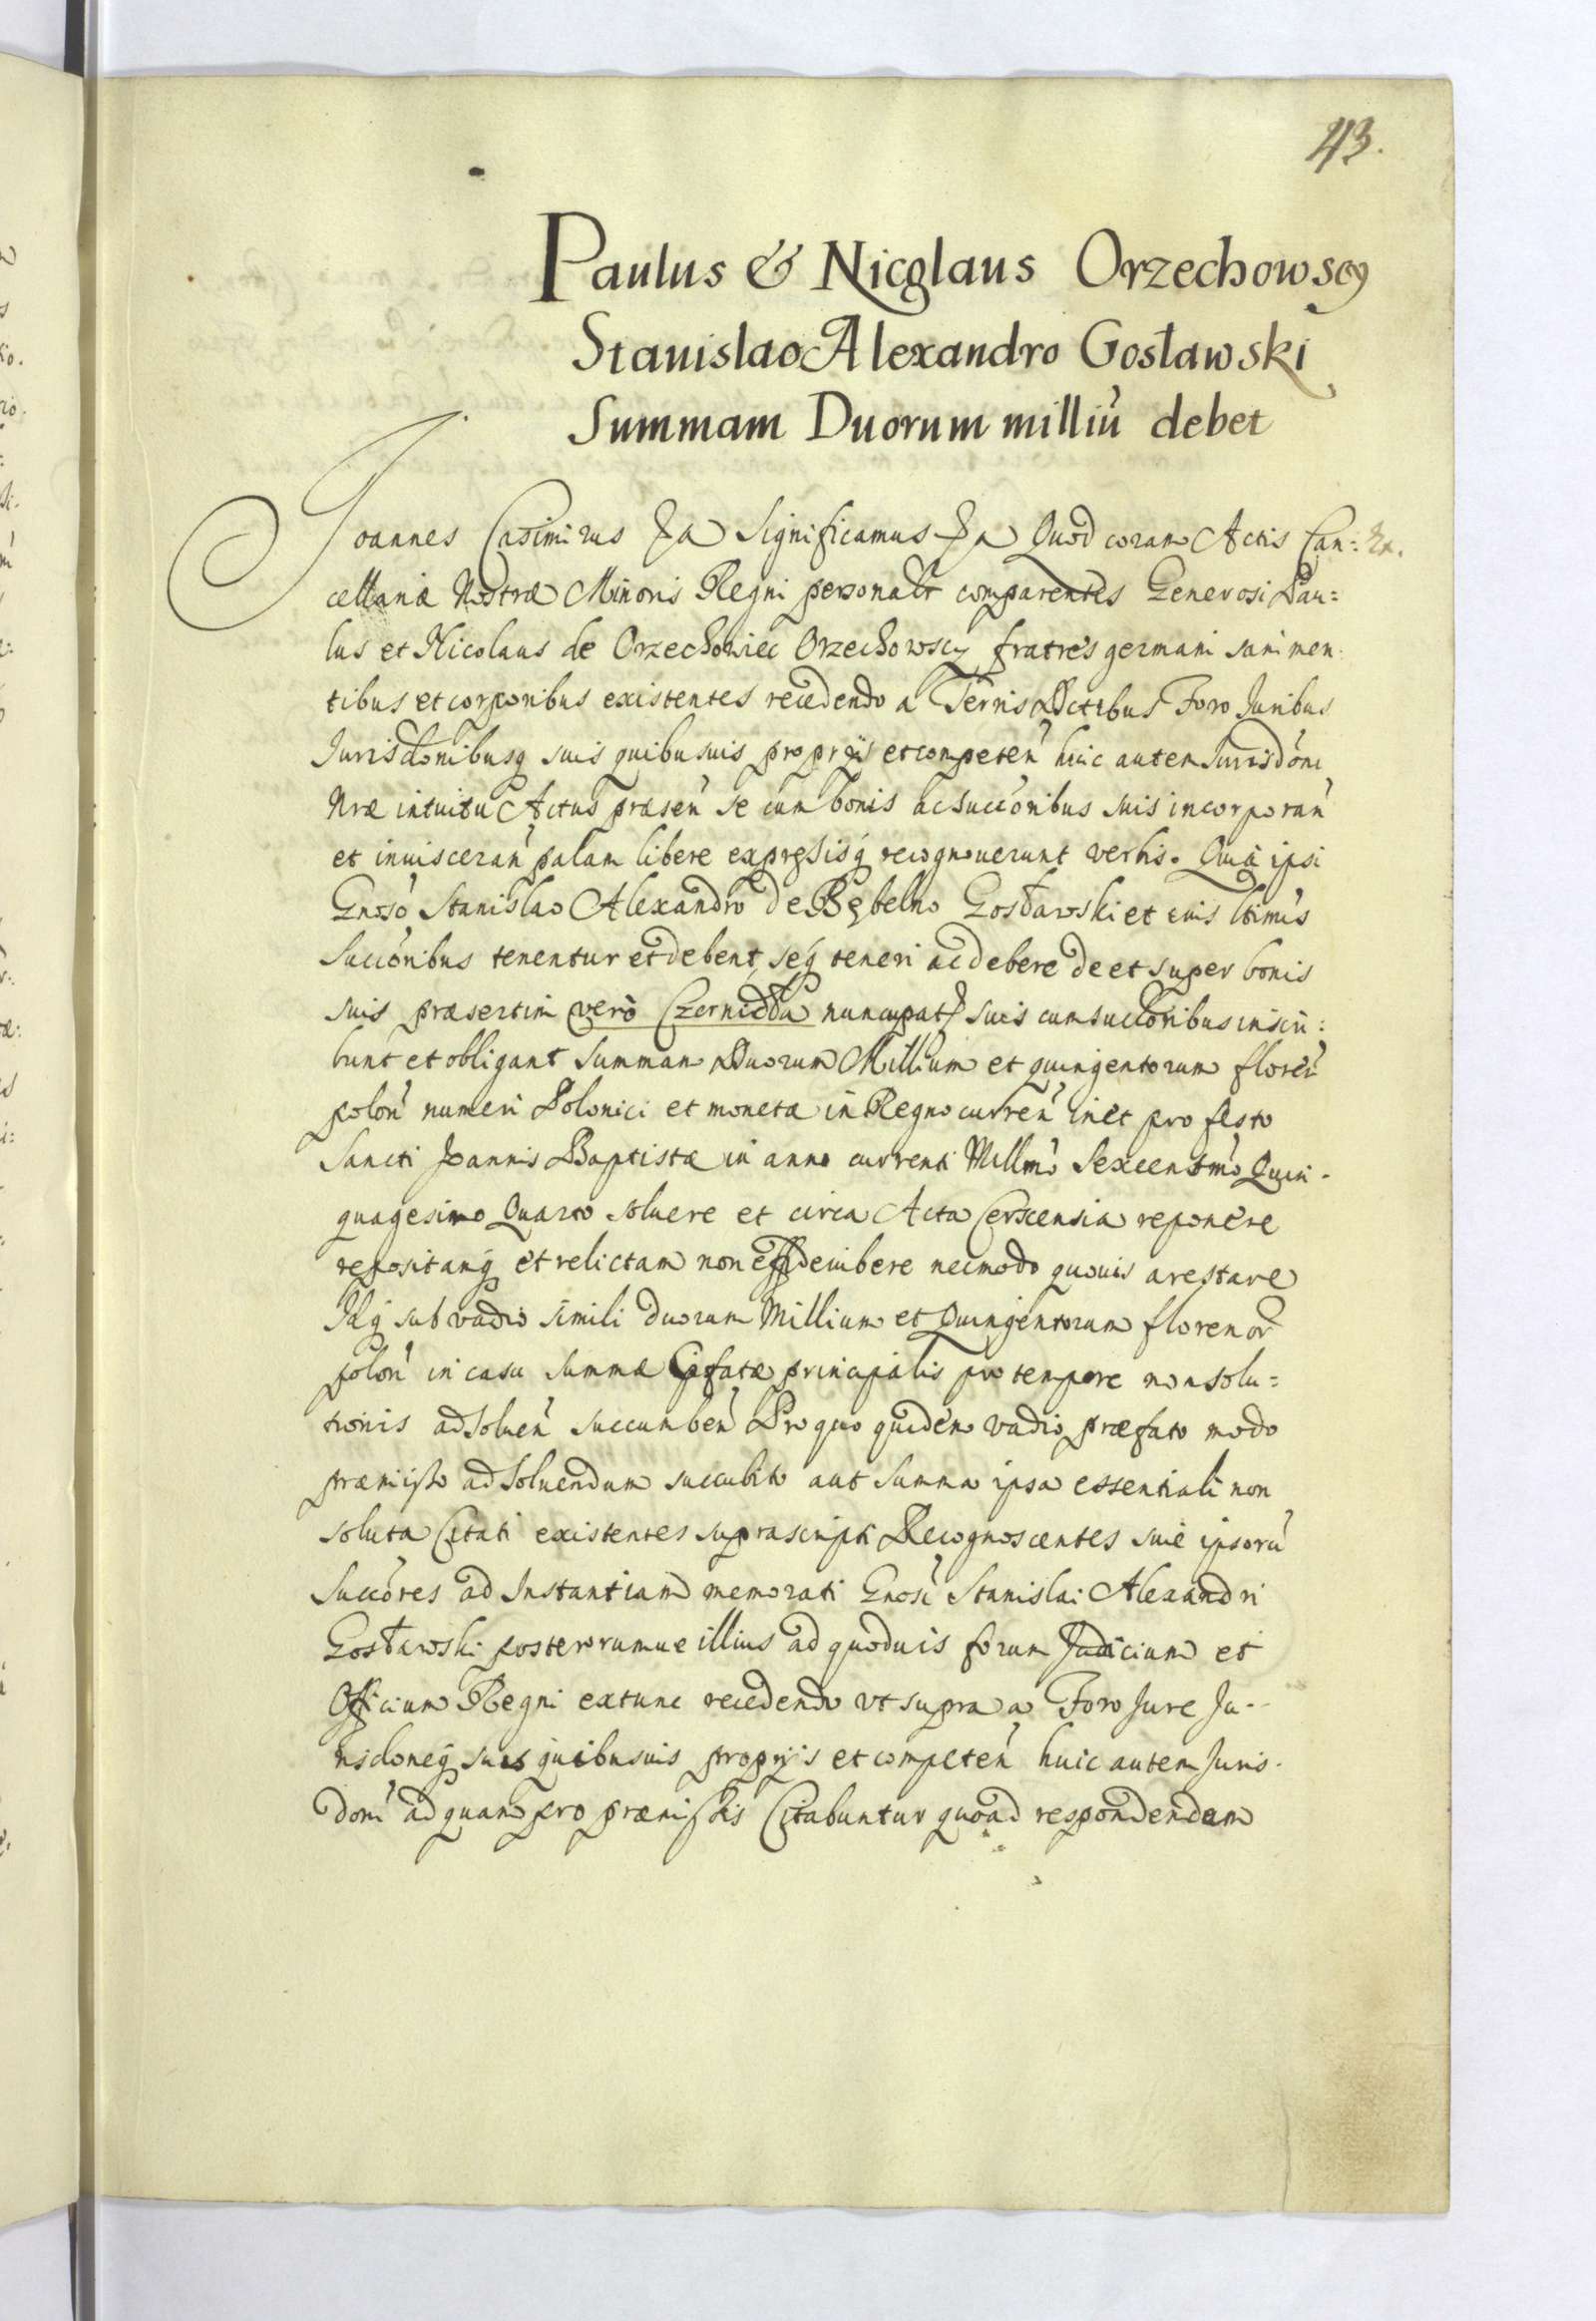 43.
Paulus & Nicolaus Orzechowscy
Stanislao Alexandro Gosławski
Summam Duorum milliu̇ debet
Joannes Casimirus &a Significamus &a Quod coram Actis Can:
cellariæ Nostræ Minoris Regni personalr comparentes Generosi Pau=
lus et Nicolaus de Orzechowiec Orzechowscy fratres germani sani men-
tibus et corporibus existentes recedendo a Terris Dictibus Foro Juribus
Jurisdonibusq suis quibusuis proprijs et competen huic autem Jurisdoni
Nræ intuitu Actus præsen se cum bonis ac succoribus suis incorporan
et inuisceran palam libere expressisq recognouerunt verbis. Quia ipsi
Gnoso Stanislao Alexandro de Bębelno Gosławski et eius ltimis
Succoribus tenentur et debent, seq teneri ac debere de et super bonis
suis præsertim vero nuncupat suis cum succoribus inscri:
bunt et obligant Summam Duorum Millium et quingentorum floren
polon numeri Polonici et moneta in Regno curren pro festo
Sancti Joannis Baptistæ in anno currenti Millmo Sexcentmo Quin-
quagesimo Quarto soluere et circa Acta Cerscensia reponere
repositamq et relictam non nec modo quouis arestare
Idq sub vadio simili duorum Millium et Quingentorum florenor
polon in casu summæ principalis pro tempore non solu=
tionis ad soluen succumben Pro quo quidem vadio præfato modo
præmisso ad soluendum succubito aut summa ipsa essentiali non
soluta Citati existentes suprascripti Recognoscentes siue ipsoru
Succores ad Instantiam memorati Gnosi Stanislai Alexandri
Gosławski posterorumue illius ad quoduis forum Judicium et
Officium Regni extunc recedendo vt supra a Foro Jure Ju-
risdoneq suis quibusuis proprijs et competen huic autem Juris-
doni ad quam pro præmissis Citabuntur quoad respondendum